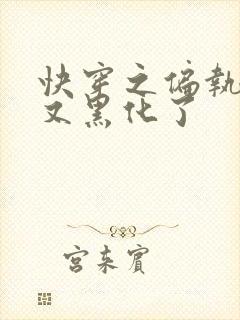 快穿之偏執
又黑化了
宮束賓